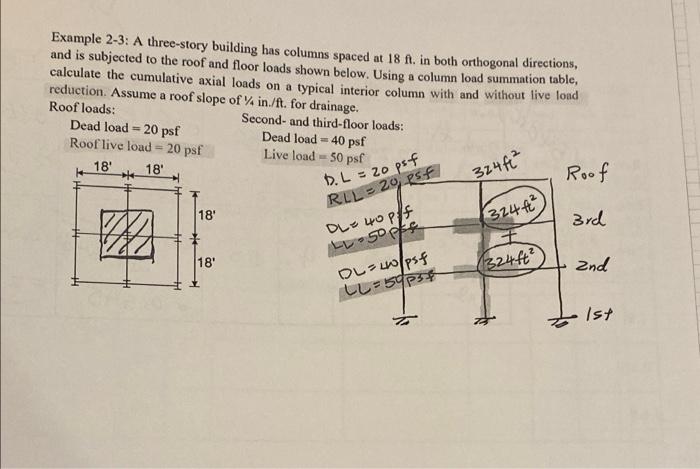 Example 2-3: A three-story building has columns spaced at 18 ft. in both orthogonal directions,
and is subjected to the roof and floor loads shown below. Using a column load summation table,
calculate the cumulative axial loads on a typical interior column with and without live load
reduction. Assume a roof slope of ¼ in./ft. for drainage.
Roof loads:
Dead load = 20 psf
Roof live load = 20 psf
Second- and third-floor loads:
Dead load = 40 psf
Live load = 50 psf
18' 18'
18'
18'
D.L = 20 psf
RLL = 20 psf
324ft²
Roof
DL = 40 psf
LL = 50 psf
324ft²
3rd
+
DL = 40 psf
LL = 50 psf
324ft²
2nd
1st